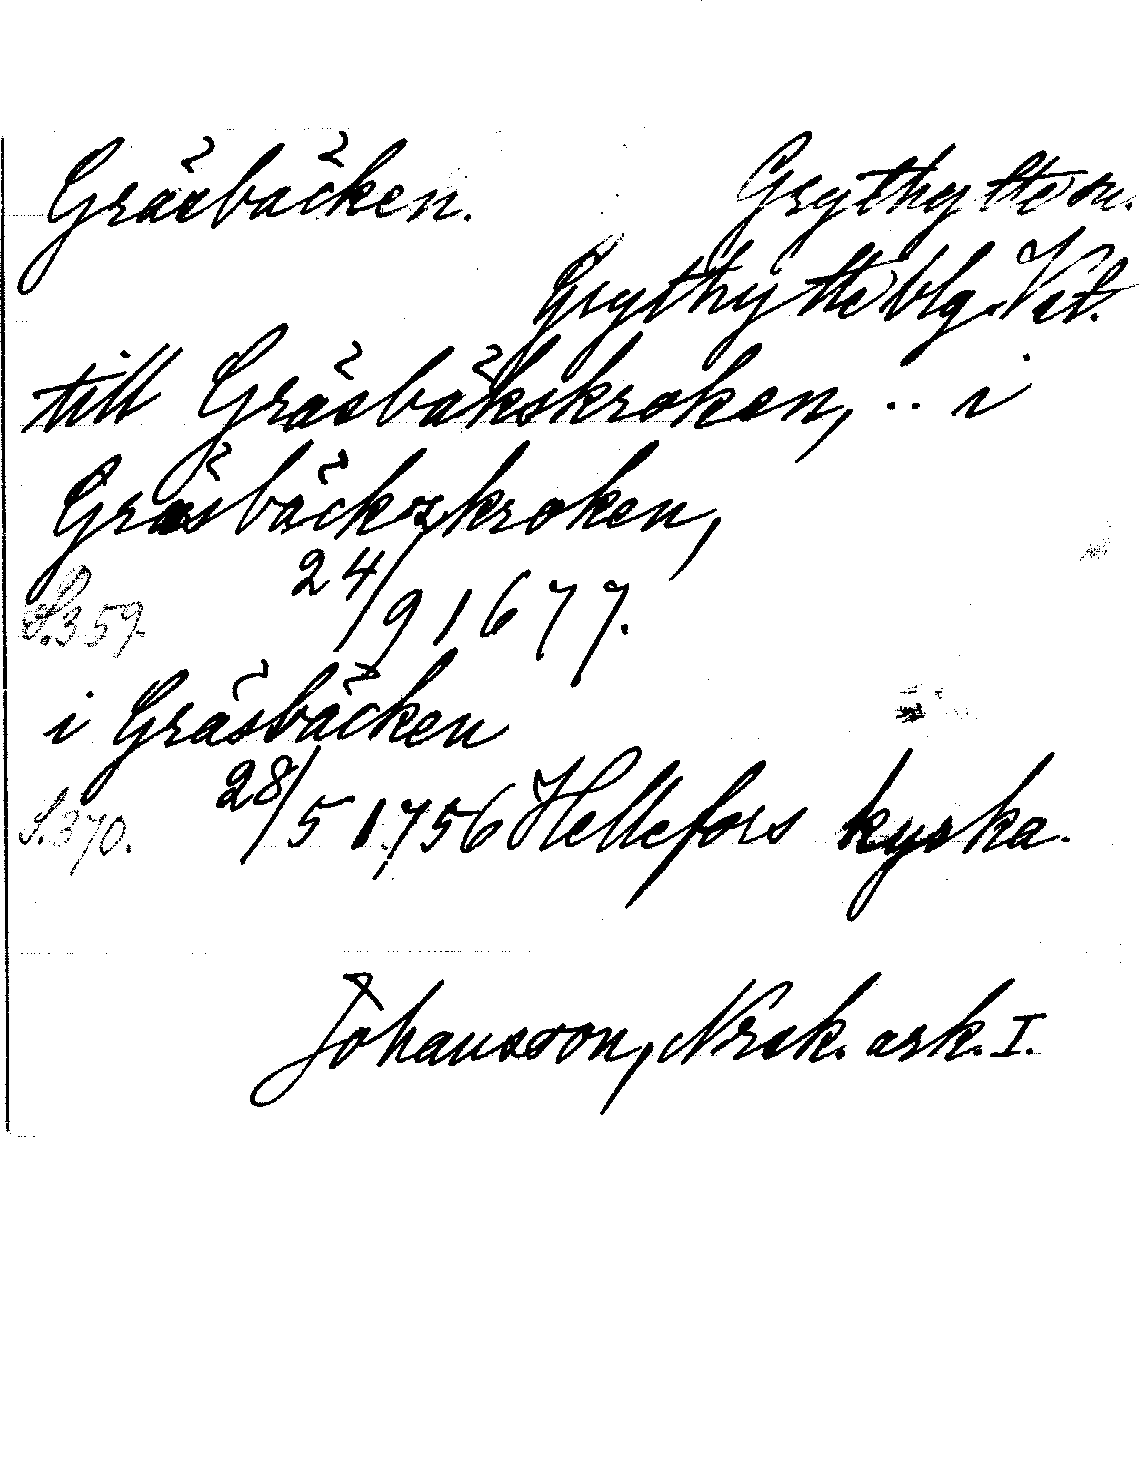 Gräsbäcken. Grythytte sn.
Grythytte blg. Vst.
till Gräsbäkskroken, .. i
Gräsbäckzkroken,
S. 359. 24/9 1677.
i Gräsbäcken
S. 370. 28/5 1756 Hellefors kyrka.
Johansson, Nrsk. ark. I.